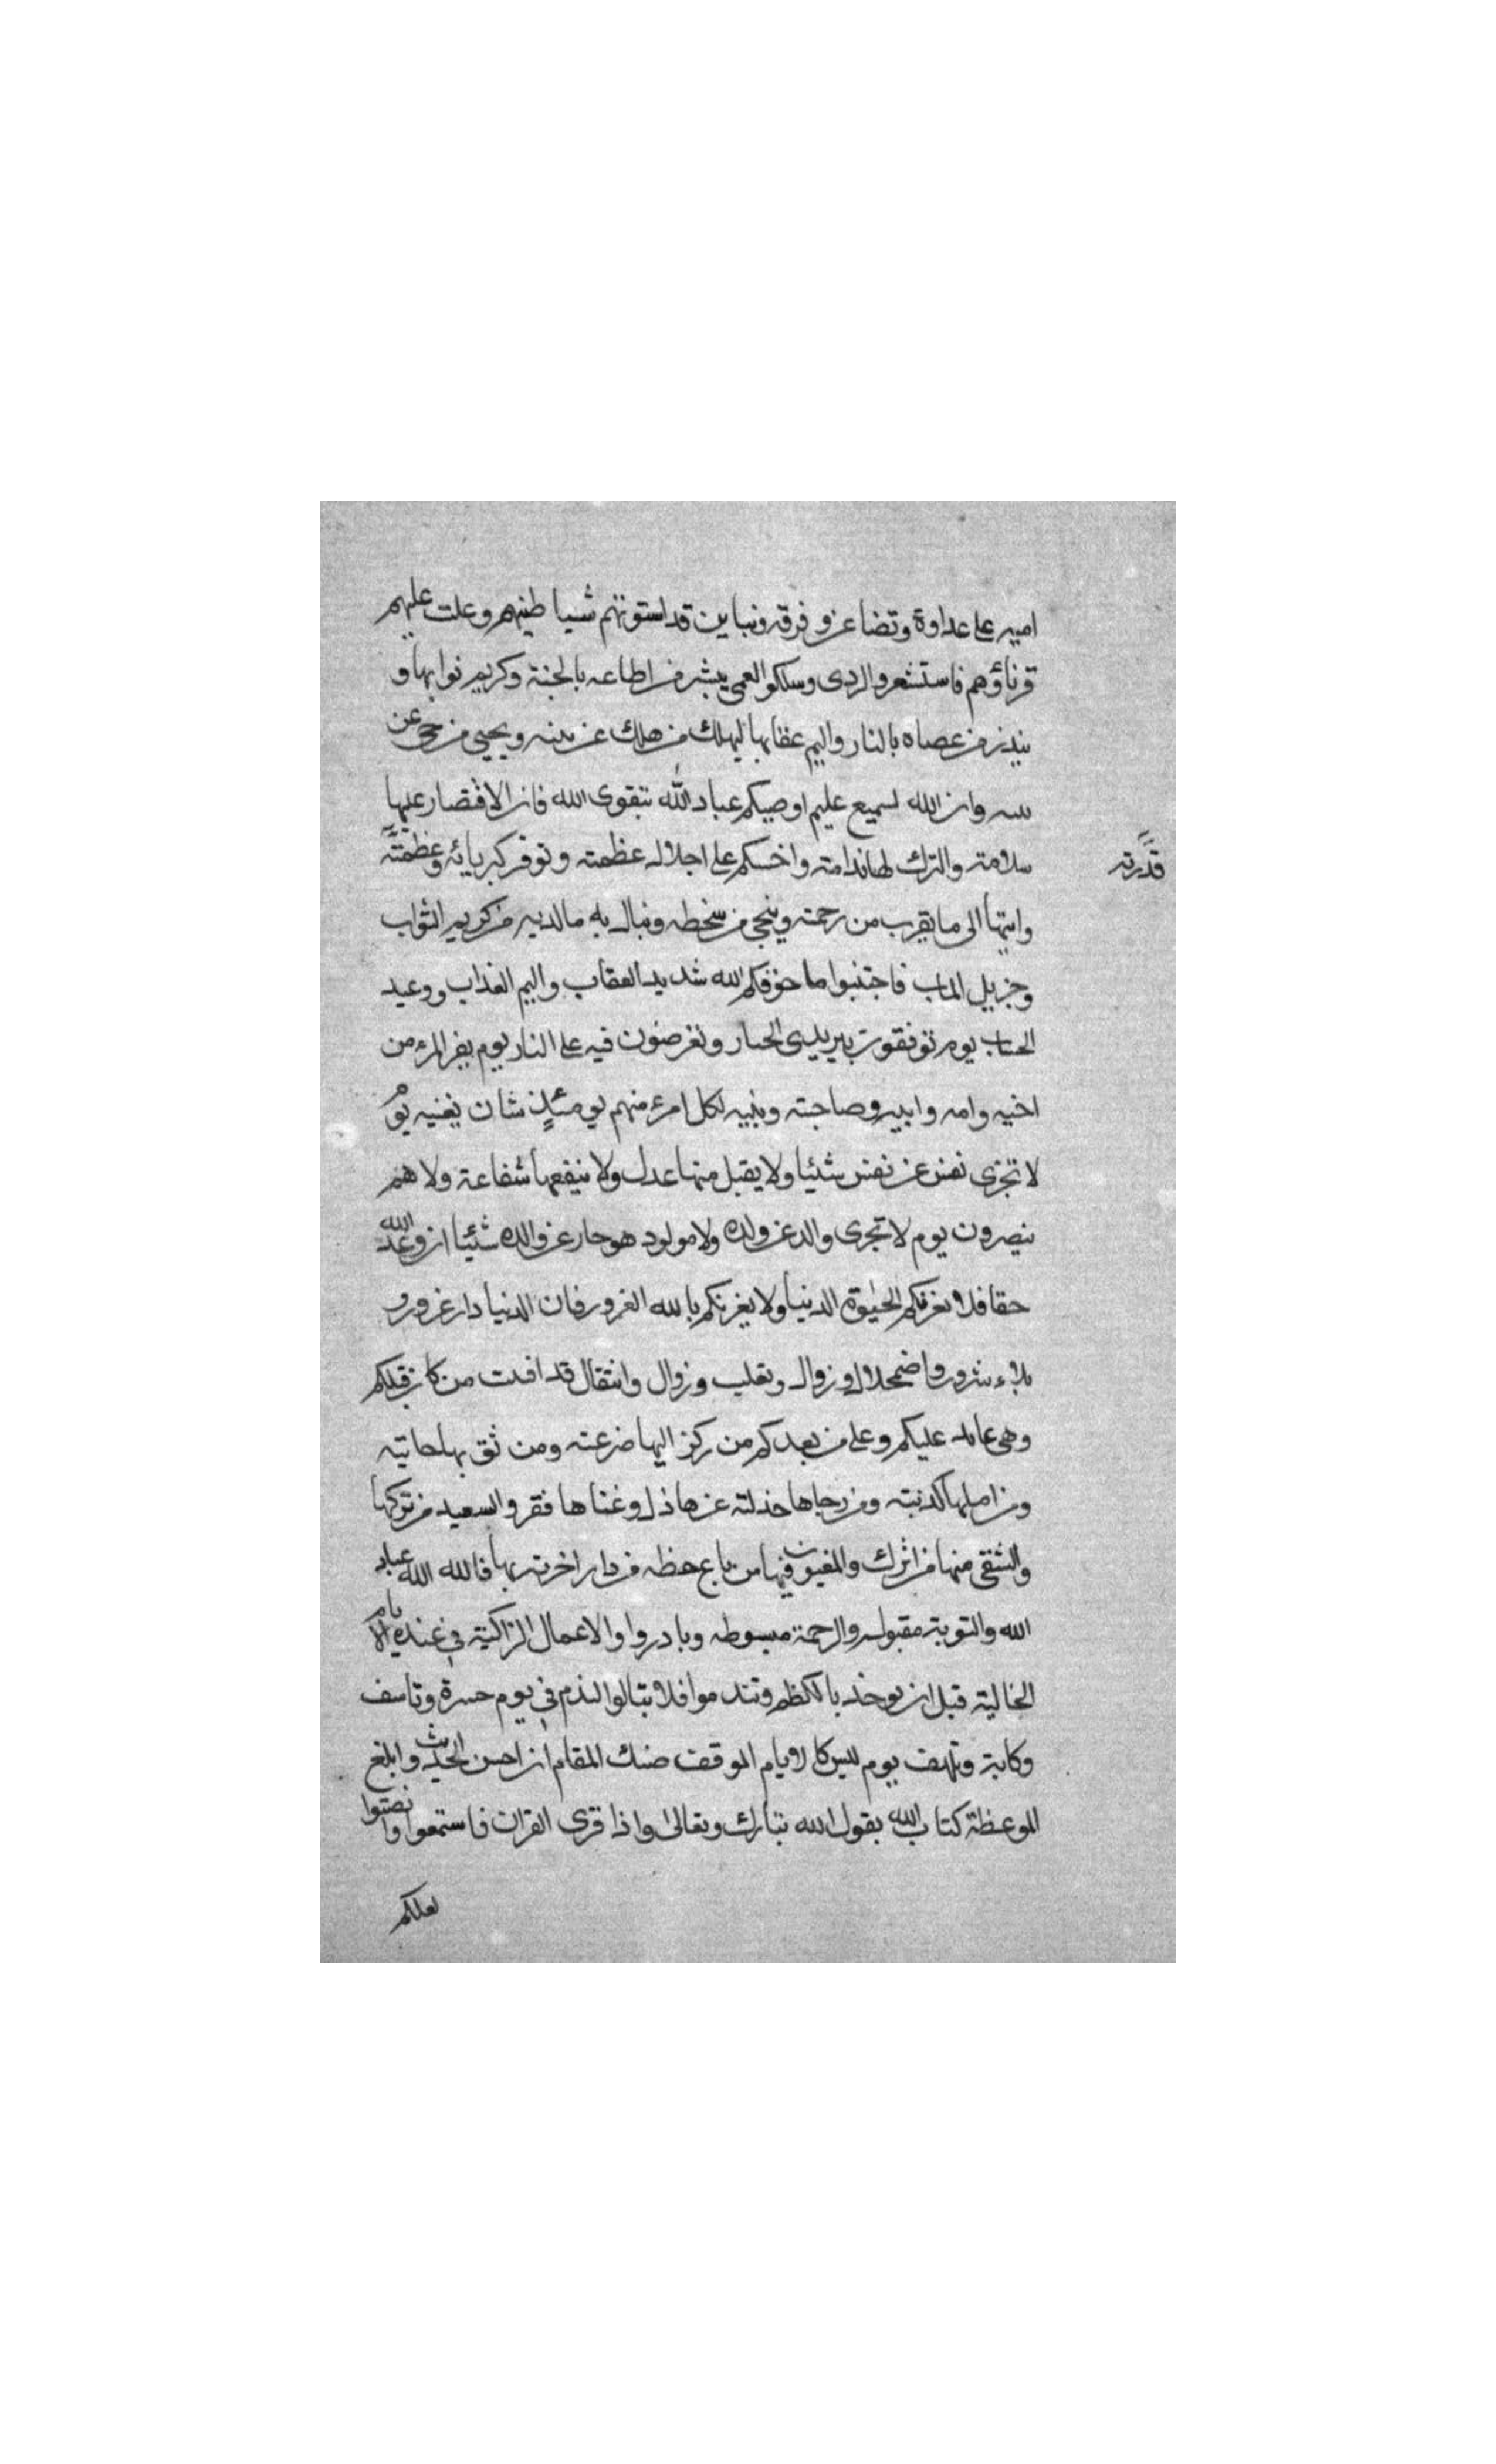 امير على عداوة وتضاغن وفرقه وتباين قد استوتهم شياطينهم وعلت عليهم
قرناؤهم فاستشعروا الردى وسلكوا العمى يبشر من اطاعه بالجنة وكريم ثوابها و
ينذر من عصاه بالنار واليم عقابها ليهلك من هلك عن بينه ويحيى من حي عن
بينه وان الله لسميع عليم اوصيكم عباد الله بتقوى الله فان الاقتصار عليها
سلامة والترك لها ندامته واحسكم على اجلال عظمته وتوقر كبريائه وعظمته
قدرته
وانتها الى ما يقرب من رحمته وينجى من سخطه وينال به مالديه من كريم الثواب
وجزيل الماب فاجتنبوا ما خوفكم الله شديد العقاب واليم العذاب ووعيد
الحساب يوم توفقون بين يدى الجبار وتعرضون فيه على النار يوم يفر المرء من
اخيه وامه وابيه وصاحبته وبنيه لكل امرء منهم يومئذ شان يغنيه يوم
لا تجزى نفس عن نفس شيئا ولا يقبل منها عدل ولا ينفعها شفاعة ولا هم
ينصرون يوم لا تجزى والد عن ولده ولا مولود هو جاز عن والده شيئا ان وعد الله
حقا فلا تغرنكم الحيوة الدنيا ولا يغرنكم بالله الغرور فان الدنيا دار غرور و
بلاء شرور واضمحلال وزوال وتقلب وزوال وانتقال قد افنت من كان قبلكم
وهى عائدة عليكم وعلى من بعدكم من ركن اليها ضرعته ومن ثق بها خانته
ومن املها كذبته ومن رجاها خذلته عزها ذل وغناها فقر والسعيد من تركها
والشقى منها من اثرك والمغبون فيها من باع حظه من دار اخرته بها فالله الله عباد
الله والتوبة مقبوله والرحمة مبسوطه وبادروا والاعمال الزاكية في عنده الايام
الخالية قبل ان يوخذ بالكظم وتندموا فلا تبالوا الندم في يوم حسرة وتاسف
وكابة وتلهف يوم ليس كالايام الموقف ضنك المقام ان احسن الحديث وابلغ
الموعظة كتاب الله يقول الله تبارك وتعالى واذا قرى القران فاستمعوا وانصتوا
لعلكم